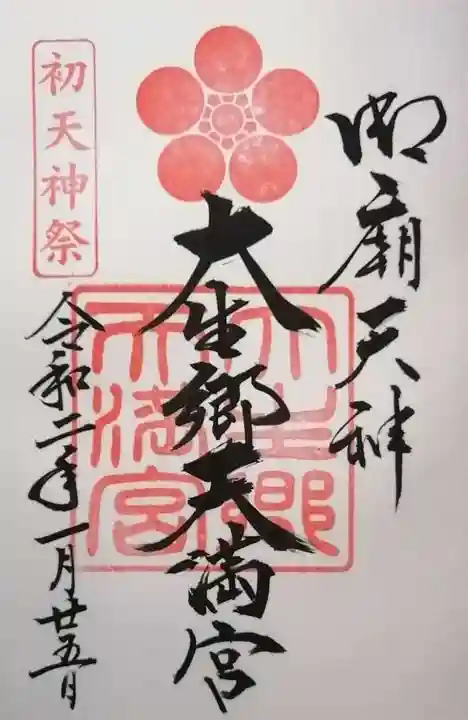 御廟天神
大生郷天満宮
大生郷天満宮
初天神祭
令和二年一月廿五日